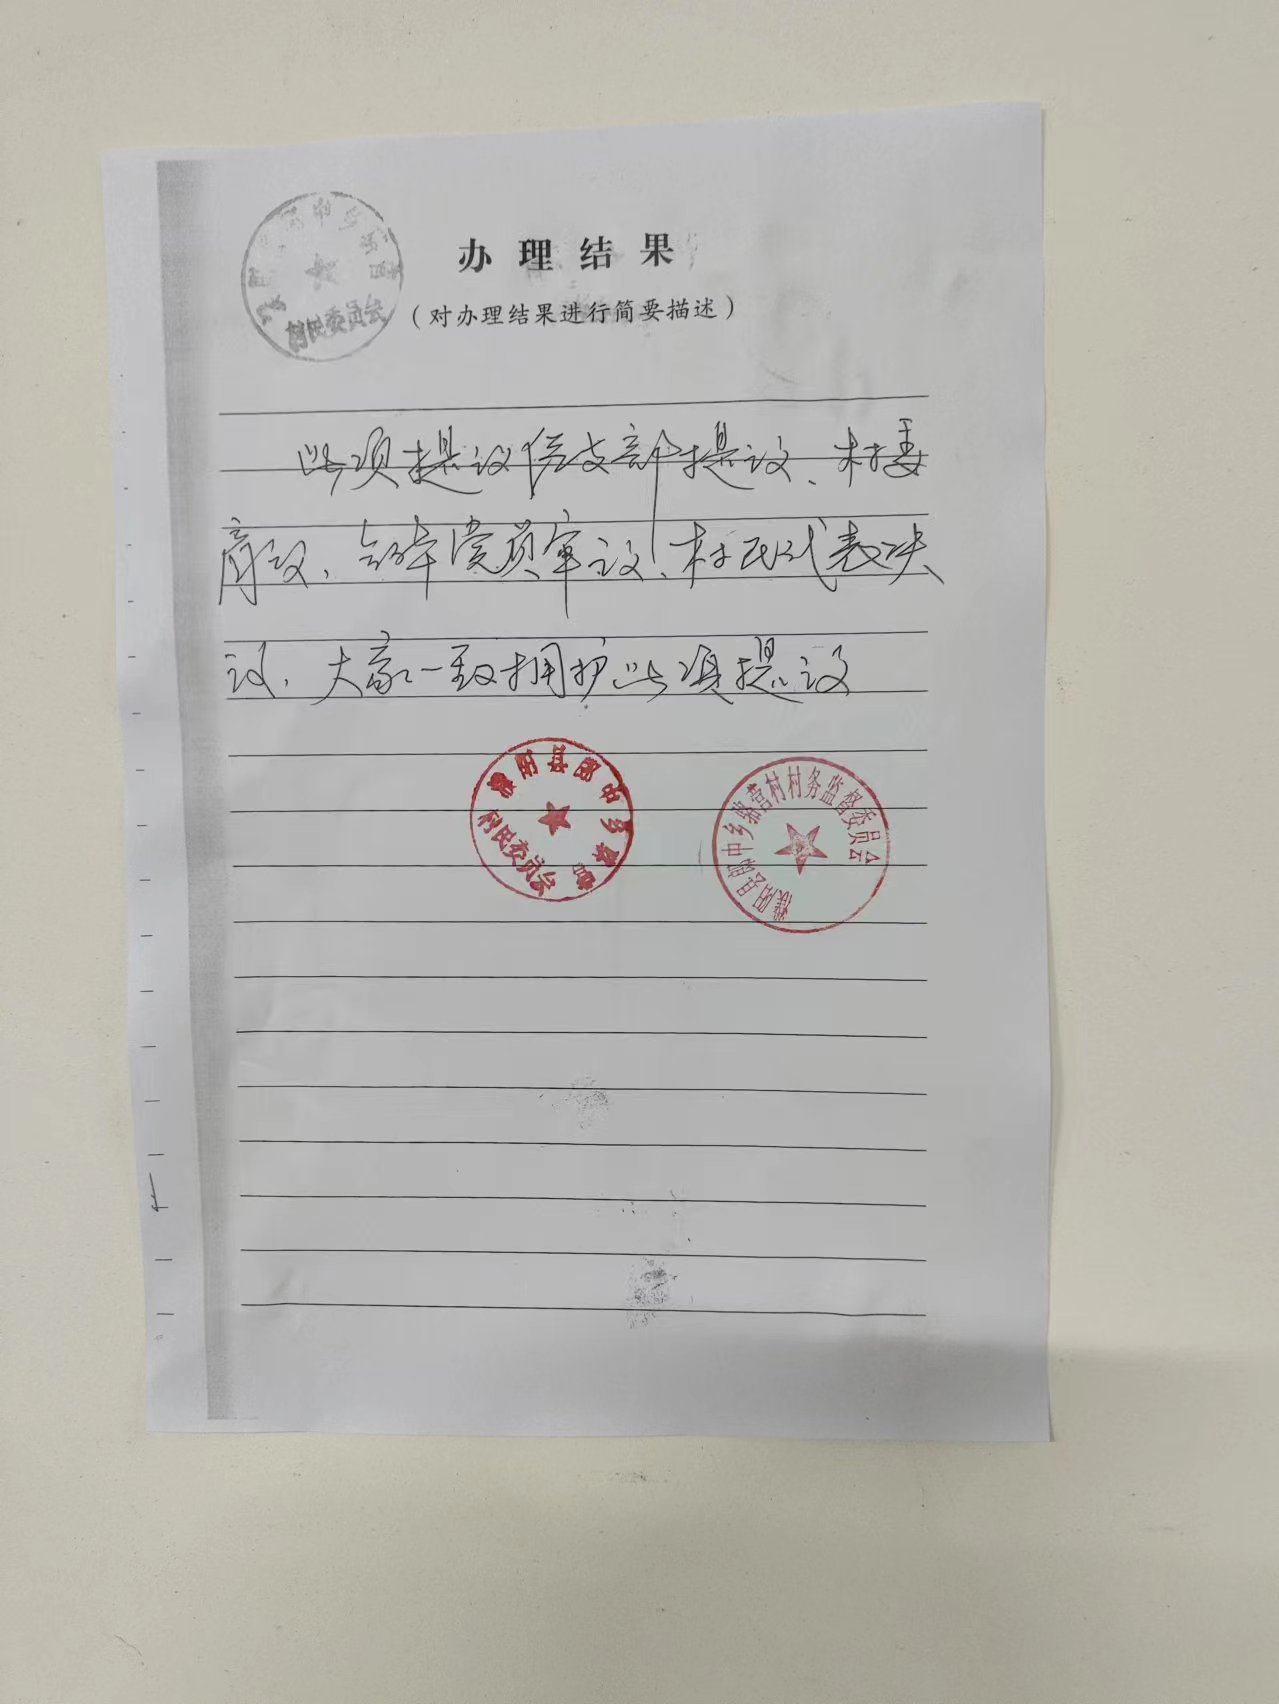 办理结果
(对办理结果进行简要描述)
村民委员会
此项提议经支部提议、村委
商议、全体党员审议、村民代表决
议、大家一致拥护此项提议
濮阳县郎中乡
村民委员会
濮阳县郎中乡 营村村务监督委员会